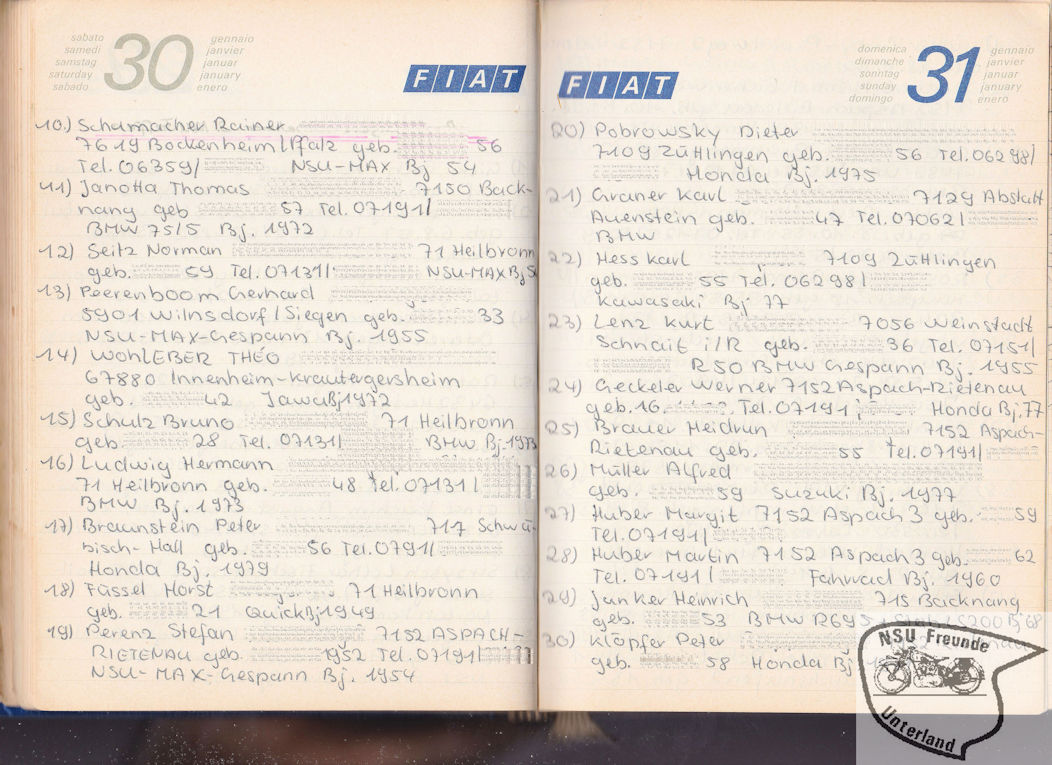 sabato
samedi
samstag
saturday
sabado
30
gennaio
janvier
januar
january
enero
FIAT
10.) Schumacher Rainer
7619 Bockenheim/Pfalz geb. 56
Tel. 06359/ NSU-MAX Bj 54
11) Janotta Thomas 7150 Back-
nang geb 57 Tel. 07191/
BMW 75/5 Bj. 1972
12) Seitz Norman 71 Heilbronn
geb. 59 Tel. 07131/ NSU-MAX Bj
13) Peerenboom Gerhard
5901 Wilnsdorf/Siegen geb. 33
NSU-MAX-Gespann Bj. 1955
14) WOHLEBER THÉO
67880 Innenheim-Krautergersheim
geb. 42 Jawa Bj 1972
15) Schulz Bruno 71 Heilbronn
geb. 28 Tel. 07131/ BMW Bj. 1973
16) Ludwig Hermann
71 Heilbronn geb. 48 Tel. 07131/
BMW Bj. 1973
17) Braunstein Peter 717 Schwä-
bisch-Hall geb. 56 Tel. 0791/
Honda Bj. 1979
18) Füssel Horst 71 Heilbronn
geb. 21 Quick Bj 1949
19) Perenz Stefan 7152 ASPACH-
RIETENAU geb. 1952 Tel. 07191/
NSU-MAX-Gespann Bj. 1954
FIAT
domenica
dimanche
sonntag
sunday
domingo
31
gennaio
janvier
januar
january
enero
20) Pobrowsky Dieter
7109 Züttlingen geb. 56 Tel. 06298/
Honda Bj. 1975
21) Graner Karl 7129 Abstatt
Auenstein geb. 47 Tel. 07062/
BMW
22) Hess Karl 7109 Züttlingen
geb. 55 Tel. 06298/
Kawasaki Bj 77
23) Lenz Kurt 7056 Weinstadt
Schnait i/R geb. 36 Tel. 07151/
R50 BMW Gespann Bj. 1955
24) Geckeler Werner 7152 Aspach-Rietenau
geb. 16. Tel. 07191 Honda Bj. 77
25) Brauer Heidrun 7152 Aspach-
Rietenau geb. 55 Tel. 07191/
26) Müller Alfred
geb. 59 Suzuki Bj. 1977
27) Huber Margit 7152 Aspach 3 geb. 59
Tel. 07191/
28) Huber Martin 7152 Aspach 3 geb. 62
Tel. 07191/ Fahrrad Bj. 1960
29) Janker Heinrich 715 Backnang
geb. 53 BMW R69S Bj 68
30) Klöpfer Peter
geb. 58 Honda Bj
NSU Freunde
Unterland